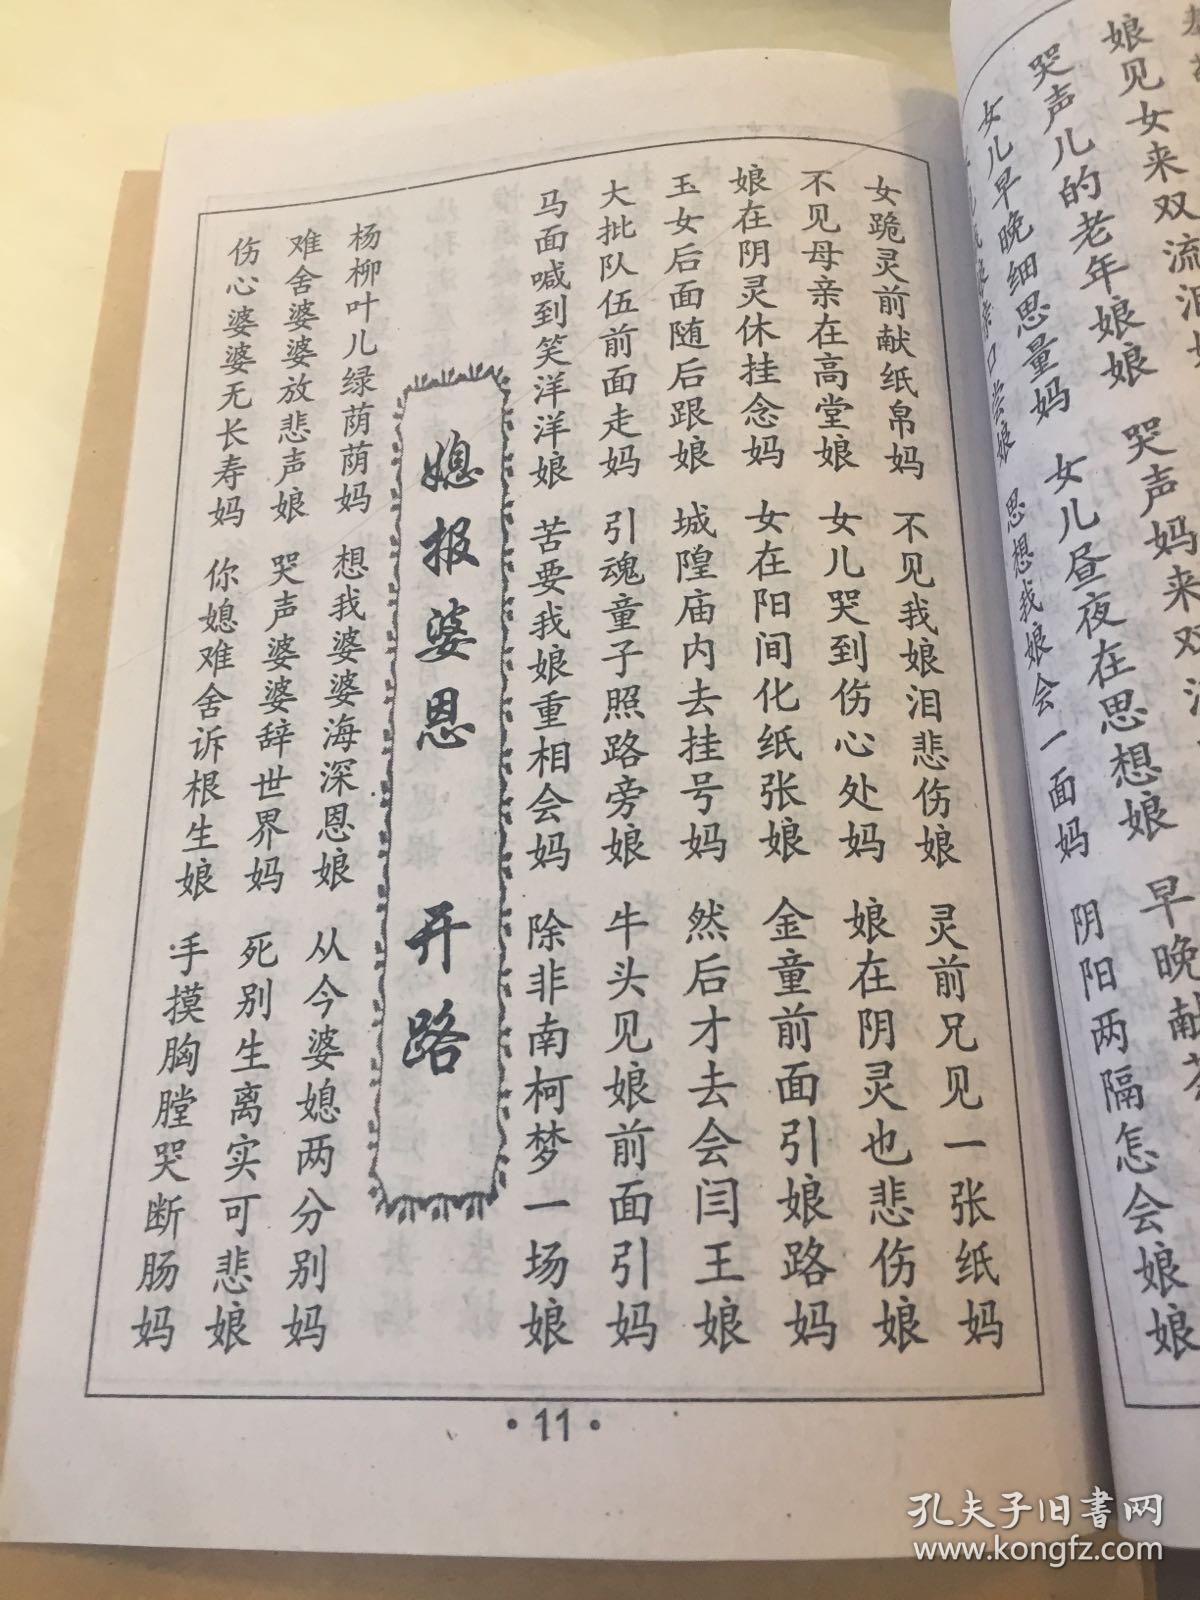 娘见女来双流泪
哭声儿的老年娘娘 哭声妈来双
女儿早晚细思量妈 女儿昼夜在思想娘 早晚献茶
思想我娘会一面妈 阴阳两隔怎会娘娘
女跪灵前献纸帛妈 不见我娘泪悲伤娘 灵前兄见一张纸妈
不见母亲在高堂娘 女儿哭到伤心处妈 娘在阴灵也悲伤娘
娘在阴灵休挂念妈 女在阳间化纸张娘 金童前面引娘路妈
玉女后面随后跟娘 城隍庙内去挂号妈 然后才去会闫王娘
大批队伍前面走妈 引魂童子照路旁娘 牛头见娘前面引妈
马面喊到笑洋洋娘 苦要我娘重相会妈 除非南柯梦一场娘
媳报婆恩 开路
杨柳叶儿绿荫荫妈 想我婆婆海深恩娘 从今婆媳两分别妈
难舍婆婆放悲声娘 哭声婆婆辞世界妈 死别生离实可悲娘
伤心婆婆无长寿妈 你媳难舍诉根生娘 手摸胸膛哭断肠妈
·11·
孔夫子旧书网
www.kongfz.com